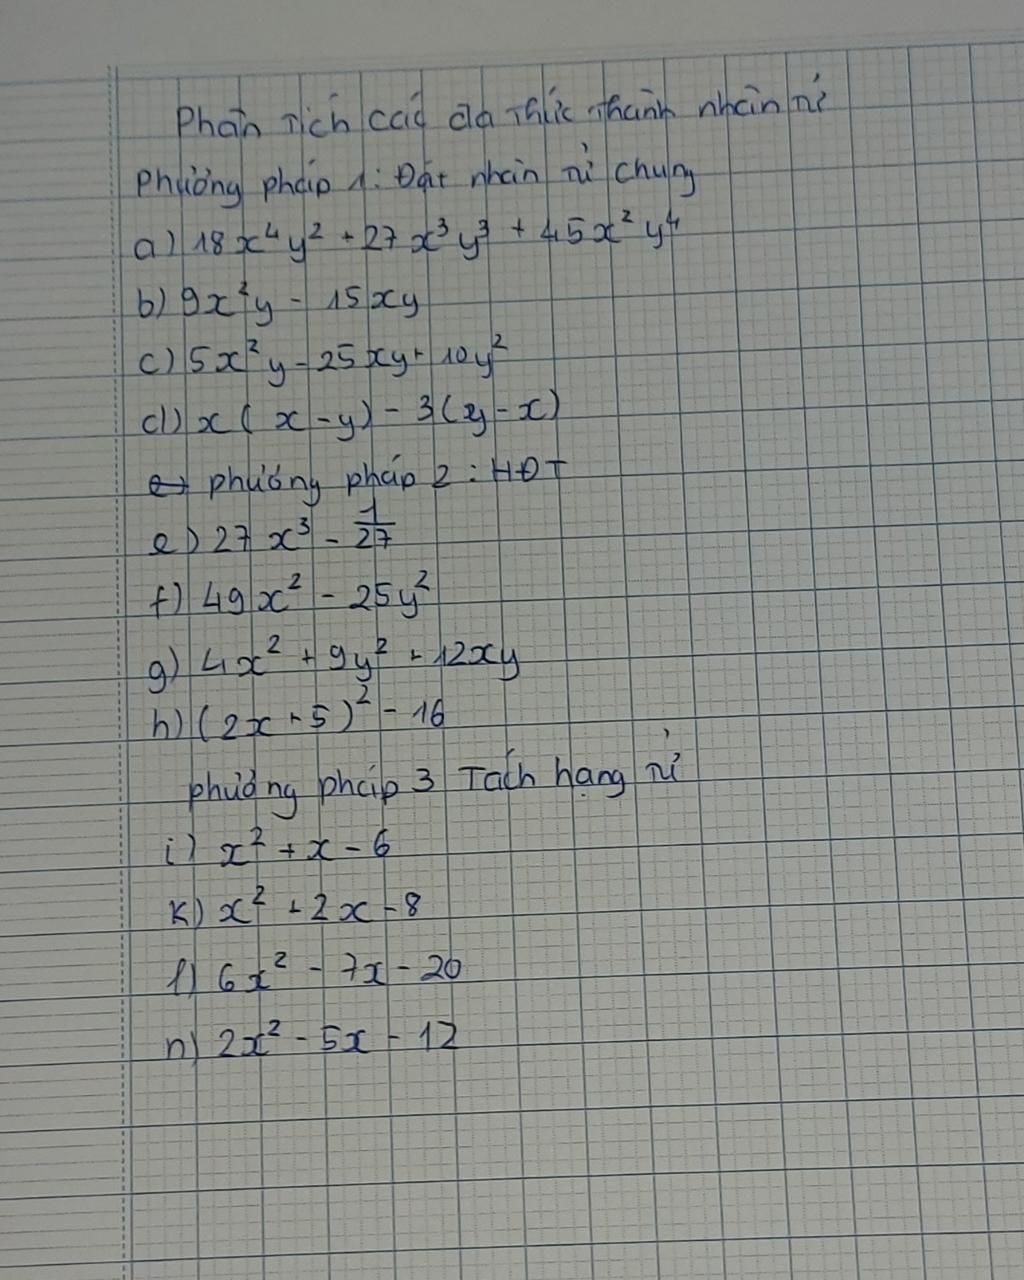 Phân tích các đa thức thành nhân tử
Phương pháp 1: Đặt nhân tử chung
a) 18x⁴y² + 27x³y³ + 45x²y⁴
b) 9x²y - 15xy
c) 5x²y - 25xy + 10y²
d) x(x - y) - 3(y - x)
phương pháp 2: HĐT
e) 27x³ - 1/27
f) 49x² - 25y²
g) 4x² + 9y² + 12xy
h) (2x + 5)² - 16
phương pháp 3 Tách hạng tử
i) x² + x - 6
k) x² + 2x - 8
l) 6x² - 7x - 20
n) 2x² - 5x - 12